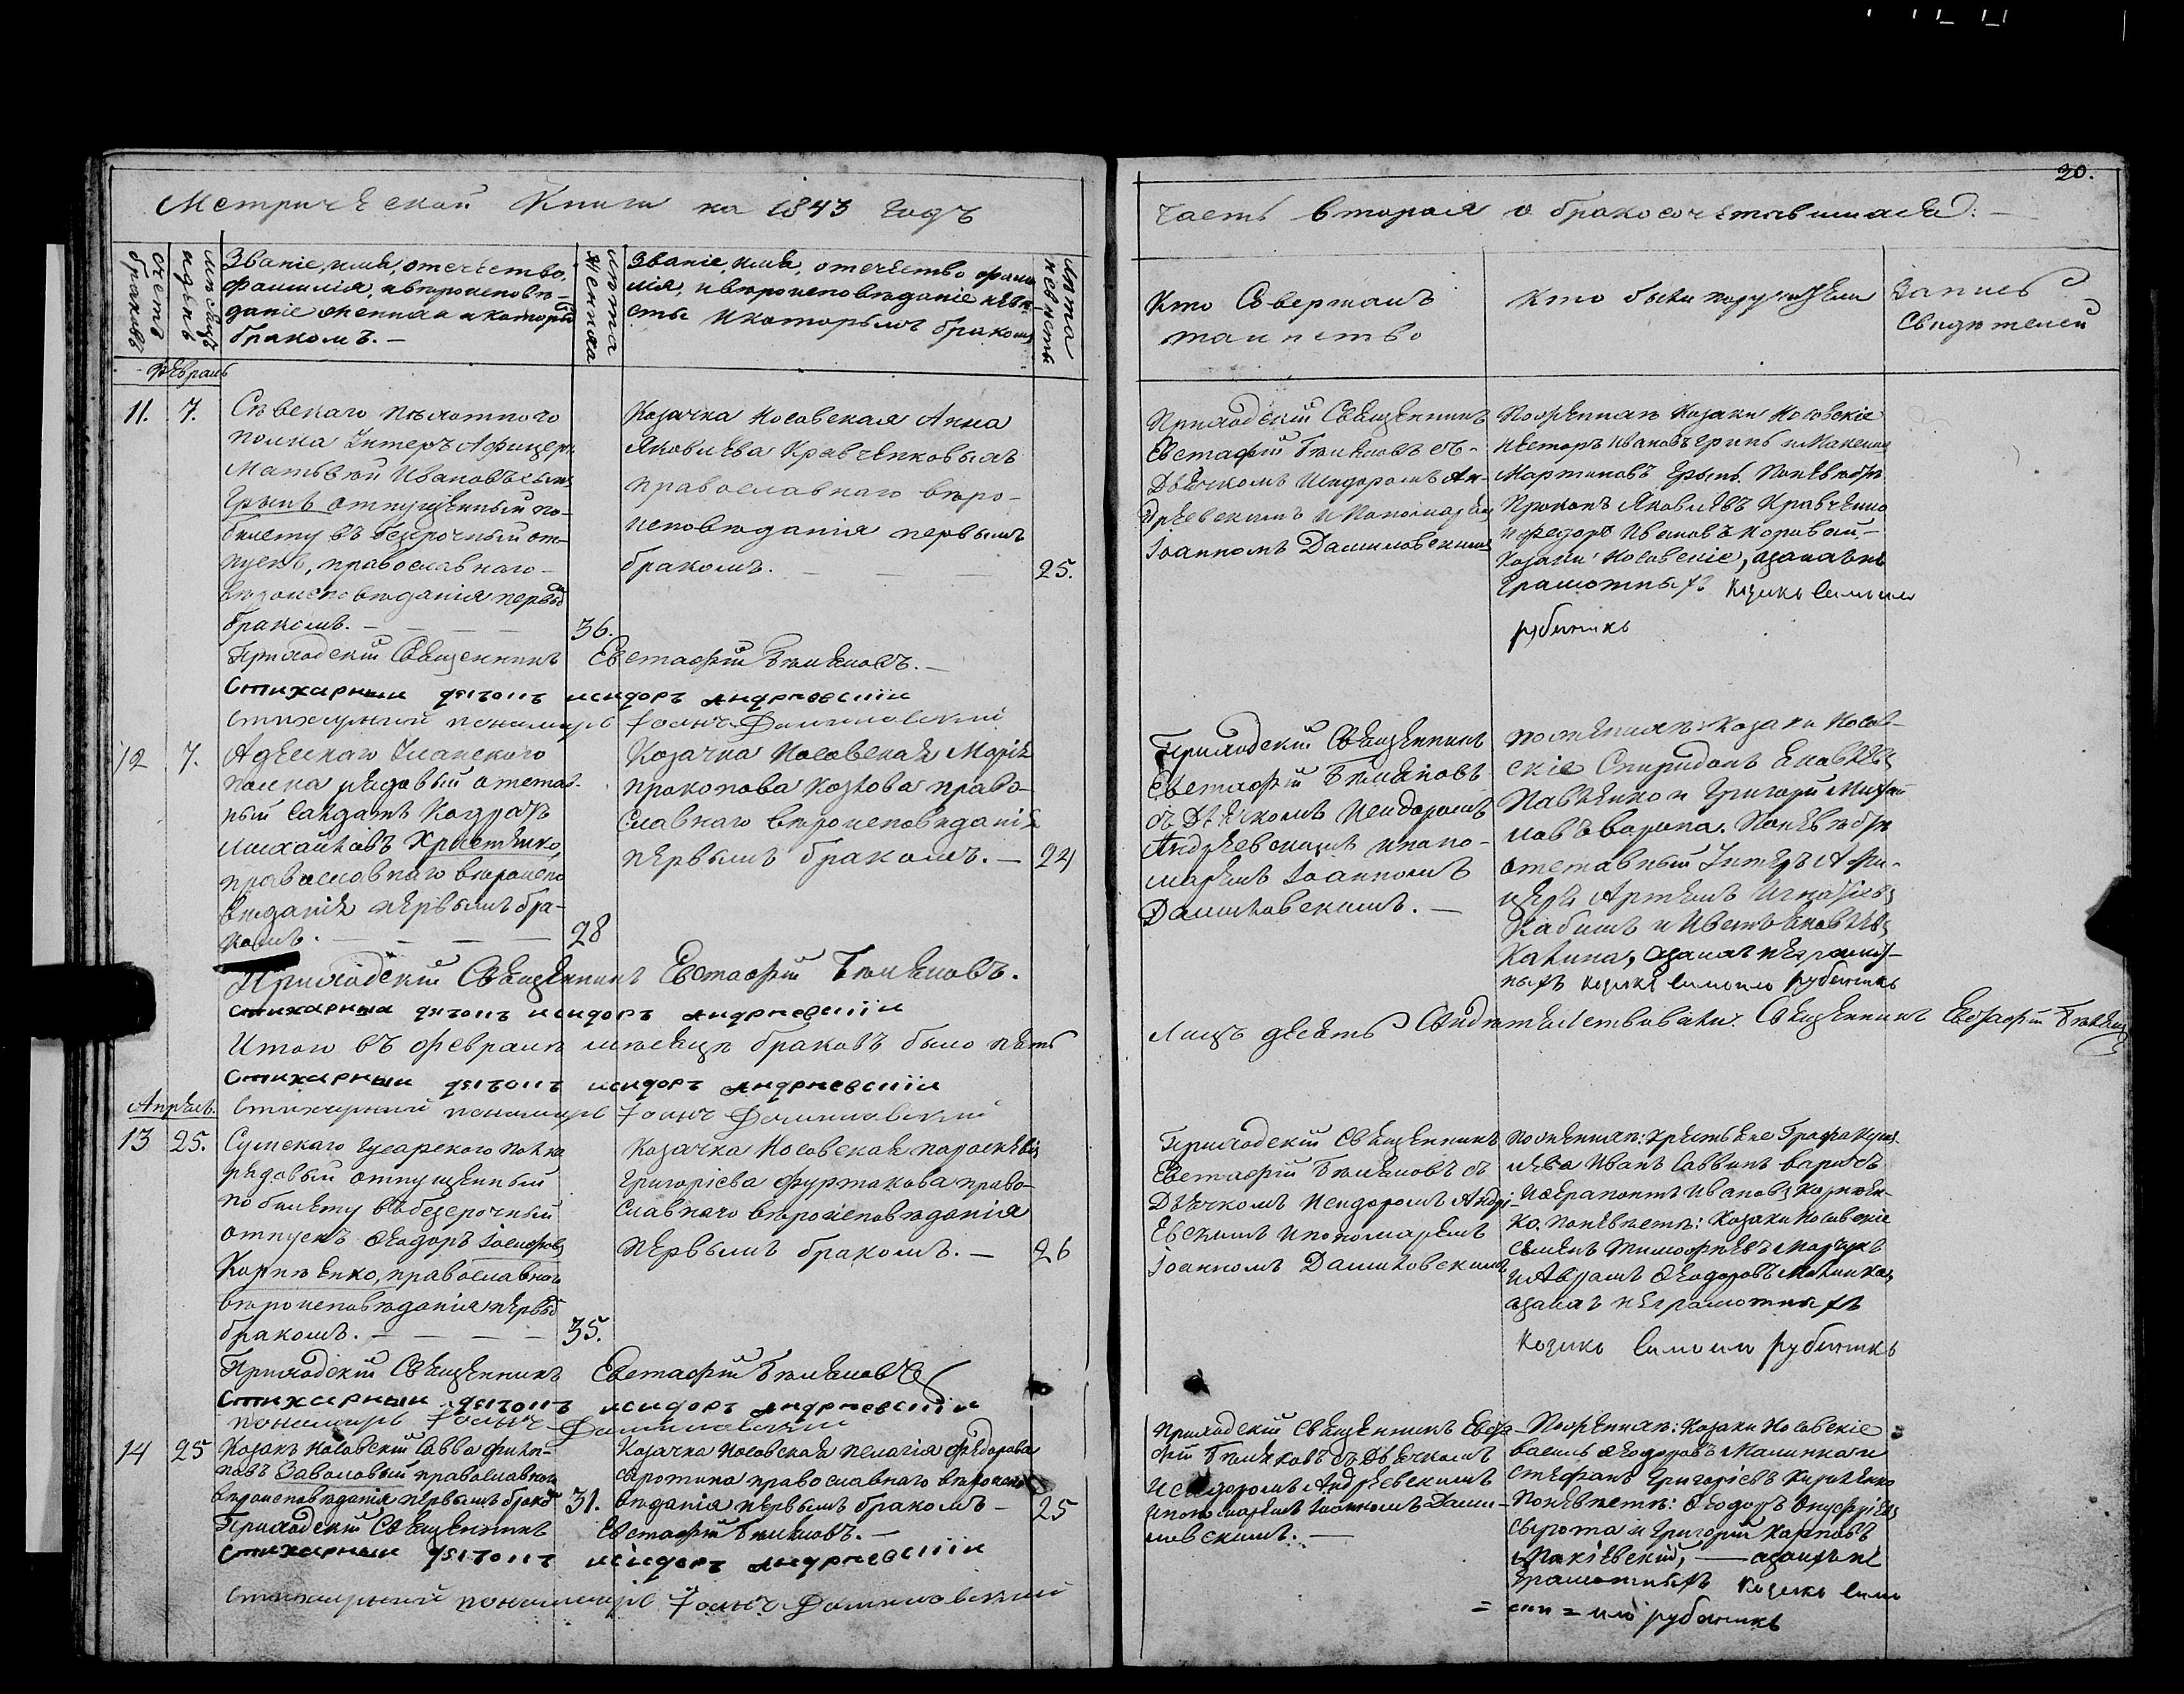 Метрической Книги на 1843 годъ
Часть вторая о бракосочетавшихся.
20.
Счетъ браковъ
Мѣсяцъ и день
Званіе, имя, отечество,
фамилія, и вѣроисповѣ-
даніе жениха и которымъ
бракомъ. —
Лѣта жениха
Званіе, имя, отечество фами
лія, и вѣроисповѣданіе невѣ-
сты и которымъ бракомъ
Лѣта невѣсты
Кто Совершалъ
таинство
Кто были поручители
Запись
Свидѣтелей
Февраль
11. 7.
Сѣвскаго пѣхотного
полка Унтеръ Афицеръ
Матьвѣй Ивановъ сынъ
Грынь отпущенный по-
билету въ безсрочный от-
пускъ, православнаго-
вѣроисповѣданія первымъ
бракомъ. —
36.
Козачка Носовская Анна
Яковлева Кравченковыхъ
православнаго вѣро-
исповѣданія первымъ
бракомъ. —
25.
Приходскій Священникъ
Евстафій Бѣляновъ съ-
Дьячкомъ Исидоромъ Ан-
дрѣевскимъ и Пономаремъ
Іоанномъ Даниловскимъ
По женихѣ Козаки Носовскіе
Несторъ Ивановъ Грынь и
Мартиновъ Грынь. По невѣстѣ
Прокопъ Яковлевъ Кравченко
и Федоръ Ивановъ Коровай. —
Козаки Носовскіе, а за ихъ не
грамотныхъ
Приходскій Священникъ Евстафій Бѣляновъ. —
Стихарный дячокъ исидоръ андриевский
Стихарный пономарь Іоаннъ Даниловский
12 7.
Адескаго Уланского
полка рядовый отстав-
ный Салдатъ Кодратъ
Михайловъ Христенко,
православнаго вѣроиспо
вѣданія первымъ бра-
комъ. —
28
Козачка Носовская Марія
Прокопова Козлова право-
славнаго вѣроисповѣданія
первымъ бракомъ. —
24
Приходскій Священникъ
Евстафій Бѣляновъ
съ Дьячкомъ Исидоромъ
Андрѣевскимъ и поно-
маремъ Іоанномъ
Даниловскимъ. —
по женихѣ: Козаки Носов-
скіе Спиридонъ Яковлевъ
Павленко и Григорій Михай
ловъ Ворона. По невѣстѣ
отставный Унтеръ Афи-
церъ Артемъ Игнатіевъ
Кабишъ и Иванъ Яковлевъ
Калина, а за ихъ неграмот-
ныхъ
Приходскій Священникъ Евстафій Бѣляновъ.
Стихарный дячокъ исидоръ андриевский
Итого въ февралѣ мѣсяцѣ браковъ было пять
Лицъ десять Свидѣтельствовали: Священникъ Евстафій Бѣляновъ
Стихарный дячокъ исидоръ андриевский
Апрѣль.
Стихарный пономарь Іоаннъ Даниловский
13 25.
Сумскаго Гусарского полка
рядовый отпущенный
по билету въ безсрочный
отпускъ Феодоръ Іосифовъ
Корнѣенко, православнаго
вѣроисповѣданія первымъ
бракомъ. —
35.
Козачка Носовская Параскевія
Григоріева Фуртакова право-
славнаго вѣроисповѣданія
первымъ бракомъ. —
26
Приходскій Священникъ
Евстафій Бѣляновъ съ
Дьячкомъ Исидоромъ Андрі-
евскимъ и пономаремъ
Іоанномъ Даниловскимъ
По женихѣ: Крестьяне Графа
Иванъ Саввинъ
Иванов Корнѣен-
ко. По невѣстѣ: Козаки Носовскіе
Семенъ Тимофѣевъ
и Аврамъ Феодоровъ Малинка,
а за ихъ неграмотныхъ
Приходскій Священникъ Евстафій Бѣляновъ
Стихарный дячокъ исидоръ андриевский
пономарь Іоаннъ Даниловский
14 25
Козакъ Носовскій Савва Филип-
повъ Заволовый православнаго
вѣроисповѣданія первымъ бракомъ
31.
Козачка Носовская Пелагія Федорова
Сиротина православнаго вѣроиспо
вѣданія первымъ бракомъ —
25
Приходскій Священникъ Евста-
фій Бѣляновъ съ Дьячкомъ
Исидоромъ Андрѣевскимъ
и пономаремъ Іоанномъ Дани-
ловскимъ. —
По женихѣ: Козаки Носовскіе
Василь Феодоровъ Малинка и
Стефанъ Григоріевъ Кириленко
По невѣстѣ: Феодоръ Онуфріевъ
Сырота и Григорій Карповъ
Макіевскій, — а за ихъ не
грамотныхъ
Приходскій Священникъ Евстафій Бѣляновъ. —
Стихарный дячокъ исидоръ андриевский
Стихарный пономарь Іоаннъ Даниловский